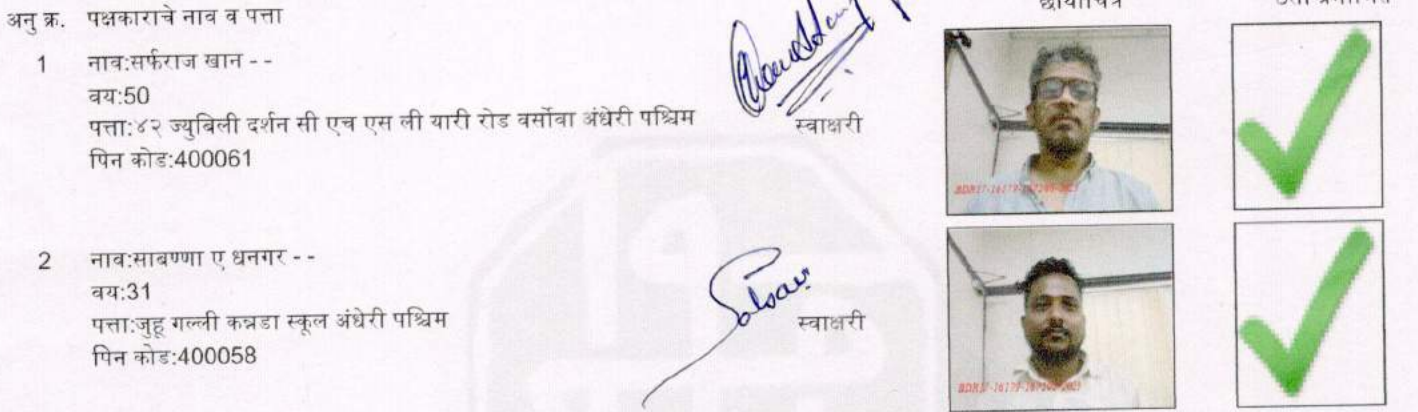 अनु क्र. पक्षकाराचे नाव व पत्ता
छायाचित्र
1 नाव:सर्फराज खान - -
वय:50
पत्ता:४२ ज्युबिली दर्शन सी एच एस ली यारी रोड वर्सोवा अंधेरी पश्चिम
पिन कोड:400061
स्वाक्षरी
2 नाव:साबण्णा ए धनगर - -
वय:31
पत्ता:जुहू गल्ली कन्नडा स्कूल अंधेरी पश्चिम
पिन कोड:400058
स्वाक्षरी